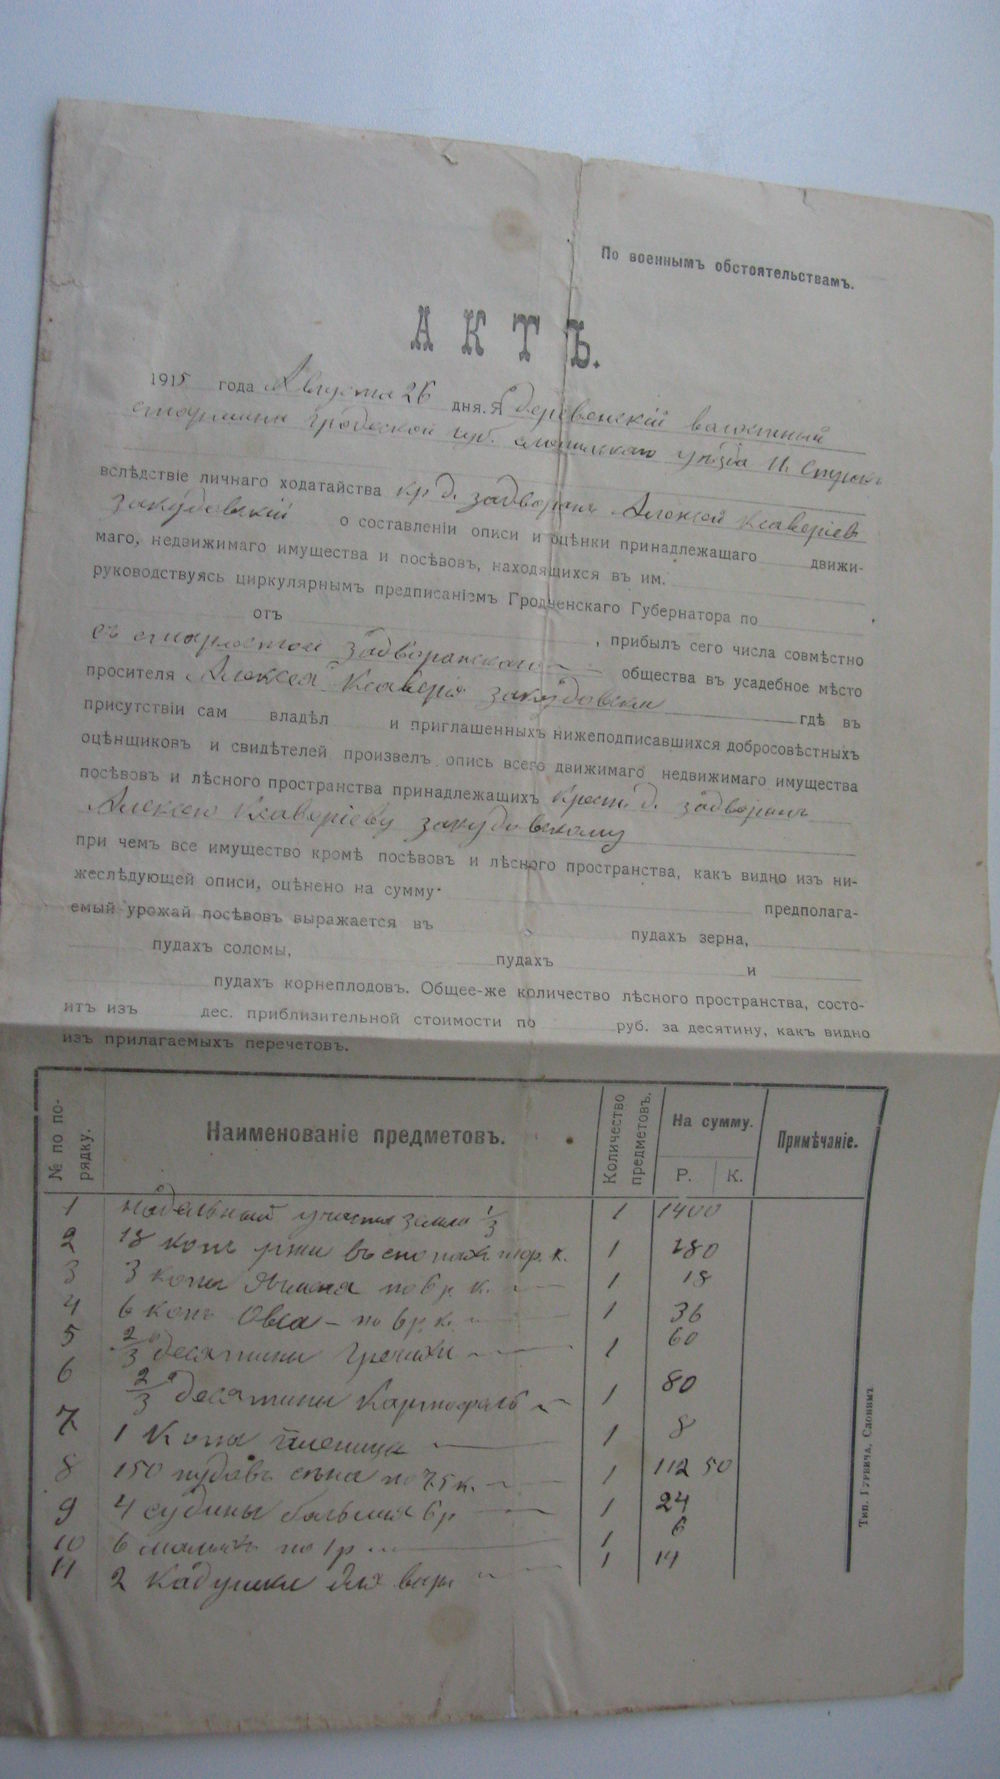 По военнымъ обстоятельствамъ.
АКТЪ.
1915 года Августа 26 дня. Я деревенскій волостный
старшина Гродской губ. уѣзда И.
вслѣдствіе личнаго ходатайства кр. д. задворань Алексей Ксаверіев
закудовскій о составленіи описи и оцѣнки принадлежащаго движи-
маго, недвижимаго имущества и посѣвовъ, находящихся въ им.
руководствуясь циркулярнымъ предписаніемъ Гродненскаго Губернатора по
отъ , прибылъ сего числа совмѣстно
съ старостой задворанскаго общества въ усадебное мѣсто
просителя Алексея Ксаверія закудовскаго гдѣ въ
присутствіи сам владѣл и приглашенныхъ нижеподписавшихся добросовѣстныхъ
оцѣнщиковъ и свидѣтелей произвелъ опись всего движимаго недвижимаго имущества
посѣвовъ и лѣсного пространства принадлежащихъ крест. д. задворань
Алексею Ксаверіеву закудовскому
при чемъ все имущество кромѣ посѣвовъ и лѣсного пространства, какъ видно изъ ни-
жеслѣдующей описи, оцѣнено на сумму предполага-
емый урожай посѣвовъ выражается въ пудахъ зерна,
пудахъ соломы, пудахъ и
пудахъ корнеплодовъ. Общее-же количество лѣсного пространства, состо-
итъ изъ дес. приблизительной стоимости по руб. за десятину, какъ видно
изъ прилагаемыхъ перечетовъ.
№ по по-рядку. Наименованіе предметовъ. Количество предметовъ. На сумму. Р. К. Примѣчаніе.
1 надельный участка земли 1/3 1 1400
2 18 копъ ржи въ снопахъ р. к. 1 180
3 3 копы Ячменя по 6 р. к. 1 18
4 6 копъ Овса – по 6 р. к. 1 36
5 2/3 десятины Гречихи 1 60
6 2/3 десятины Картофель 1 80
7 1 Копа пшеницы 1 8
8 150 пудовъ сѣна по 75 к. 1 112 50
9 4 судины большия 6 р 1 24
10 6 малыхъ по 1 р 1 6
11 2 Кадушки для 1 14
Тип. Гурвича, Слонимъ